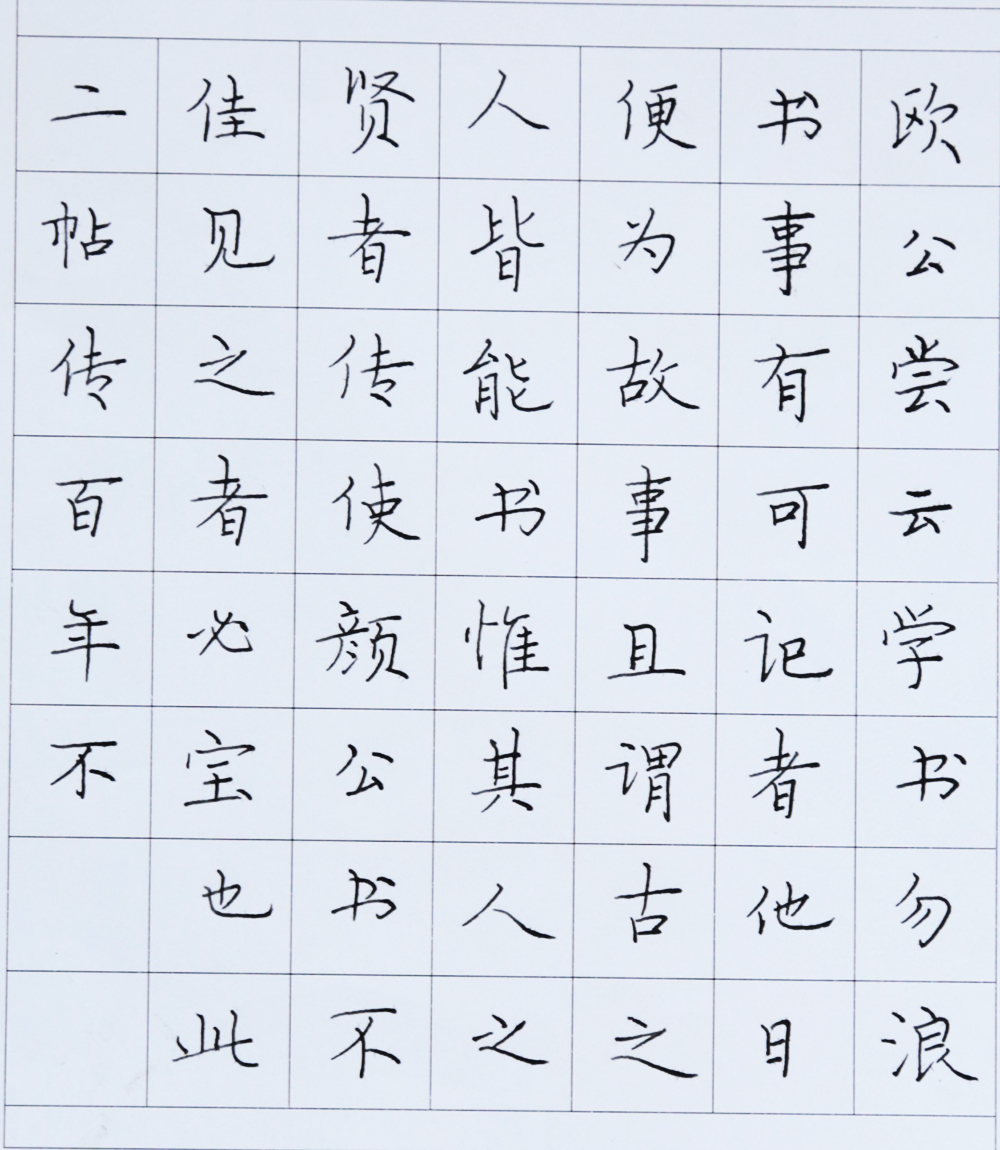 欧公尝云学书勿浪
书事有可记者他日
便为故事且谓古之
人皆能书惟其人之
贤者传使颜公书不
佳见之者必宝也此
二帖传百年不